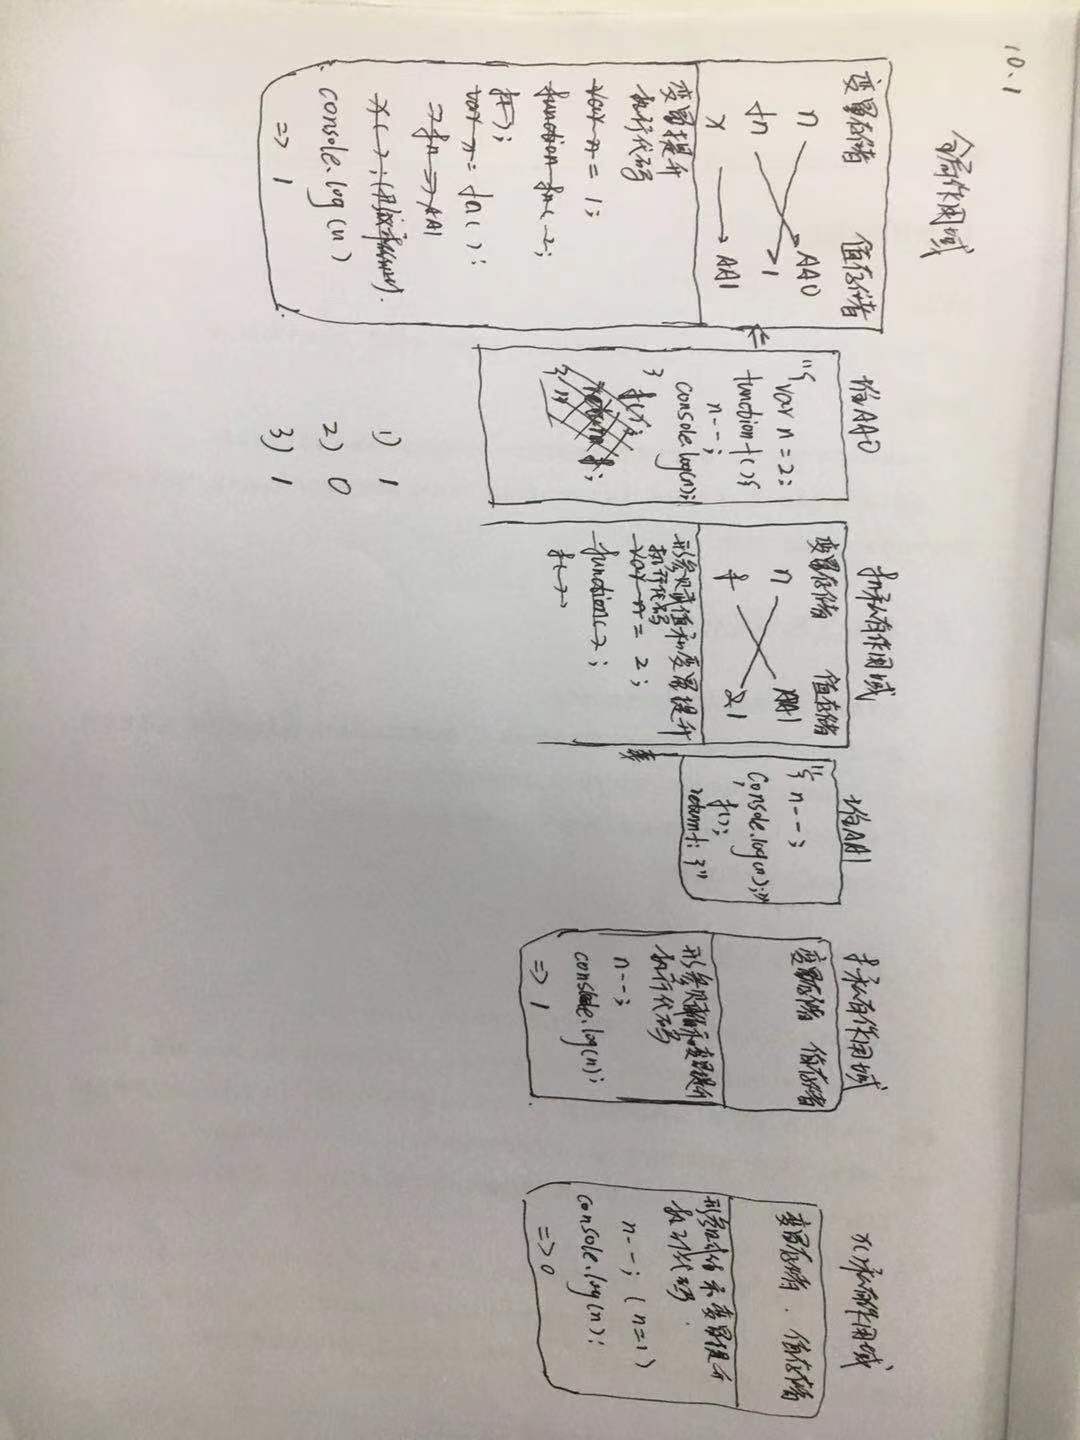 10.1
全局作用域
变量存储 值存储
n AA0
fn 1
x AA1
变量提升
执行代码
var n = 1;
function fn( );
var x = fn( );
=> fn => AA1
console.log(n)
=> 1
堆AA0
"{var n=2;
function f(){
n--;
console.log(n);
}
f();
return f;
1) 1
2) 0
3) 1
fn私有作用域
变量存储 值存储
n AA1
f 2 1
形参赋值和变量提升
执行代码
var n = 2;
function( );
f( )
堆AA1
"{ n--;
console.log(n);"
f();
return f; }"
f私有作用域
变量存储 值存储
形参赋值和变量提升
执行代码
n--;
console.log(n);
=> 1
x()私有作用域
变量存储 值存储
形参赋值和变量提升
执行代码
n--; (n=1)
console.log(n);
=> 0